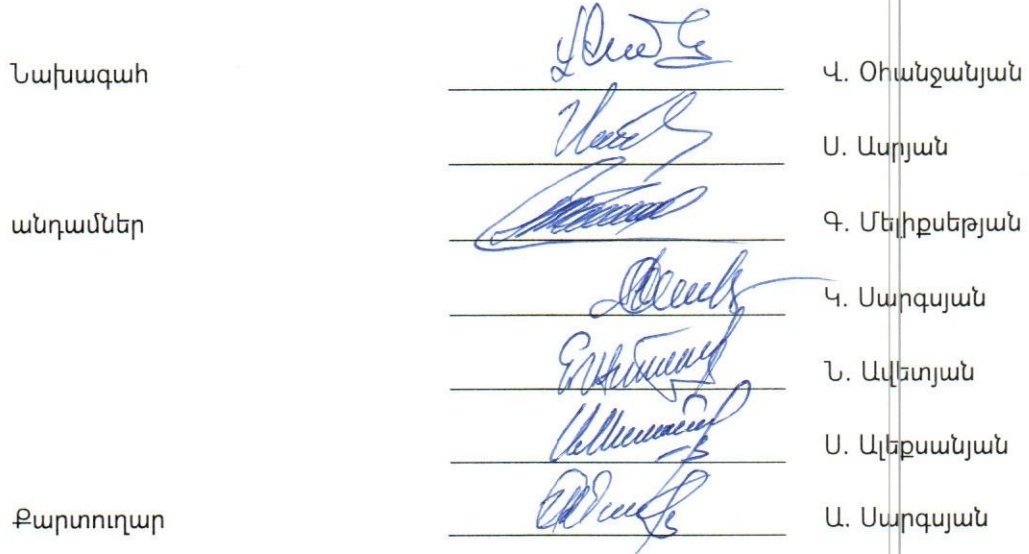 Նախագահ Վ. Օհանջանյան
Ս. Ասրյան
անդամներ Գ. Մելիքսեթյան
Կ. Սարգսյան
Ն. Ավետյան
Ս. Ալեքսանյան
Քարտուղար Ա. Սարգսյան